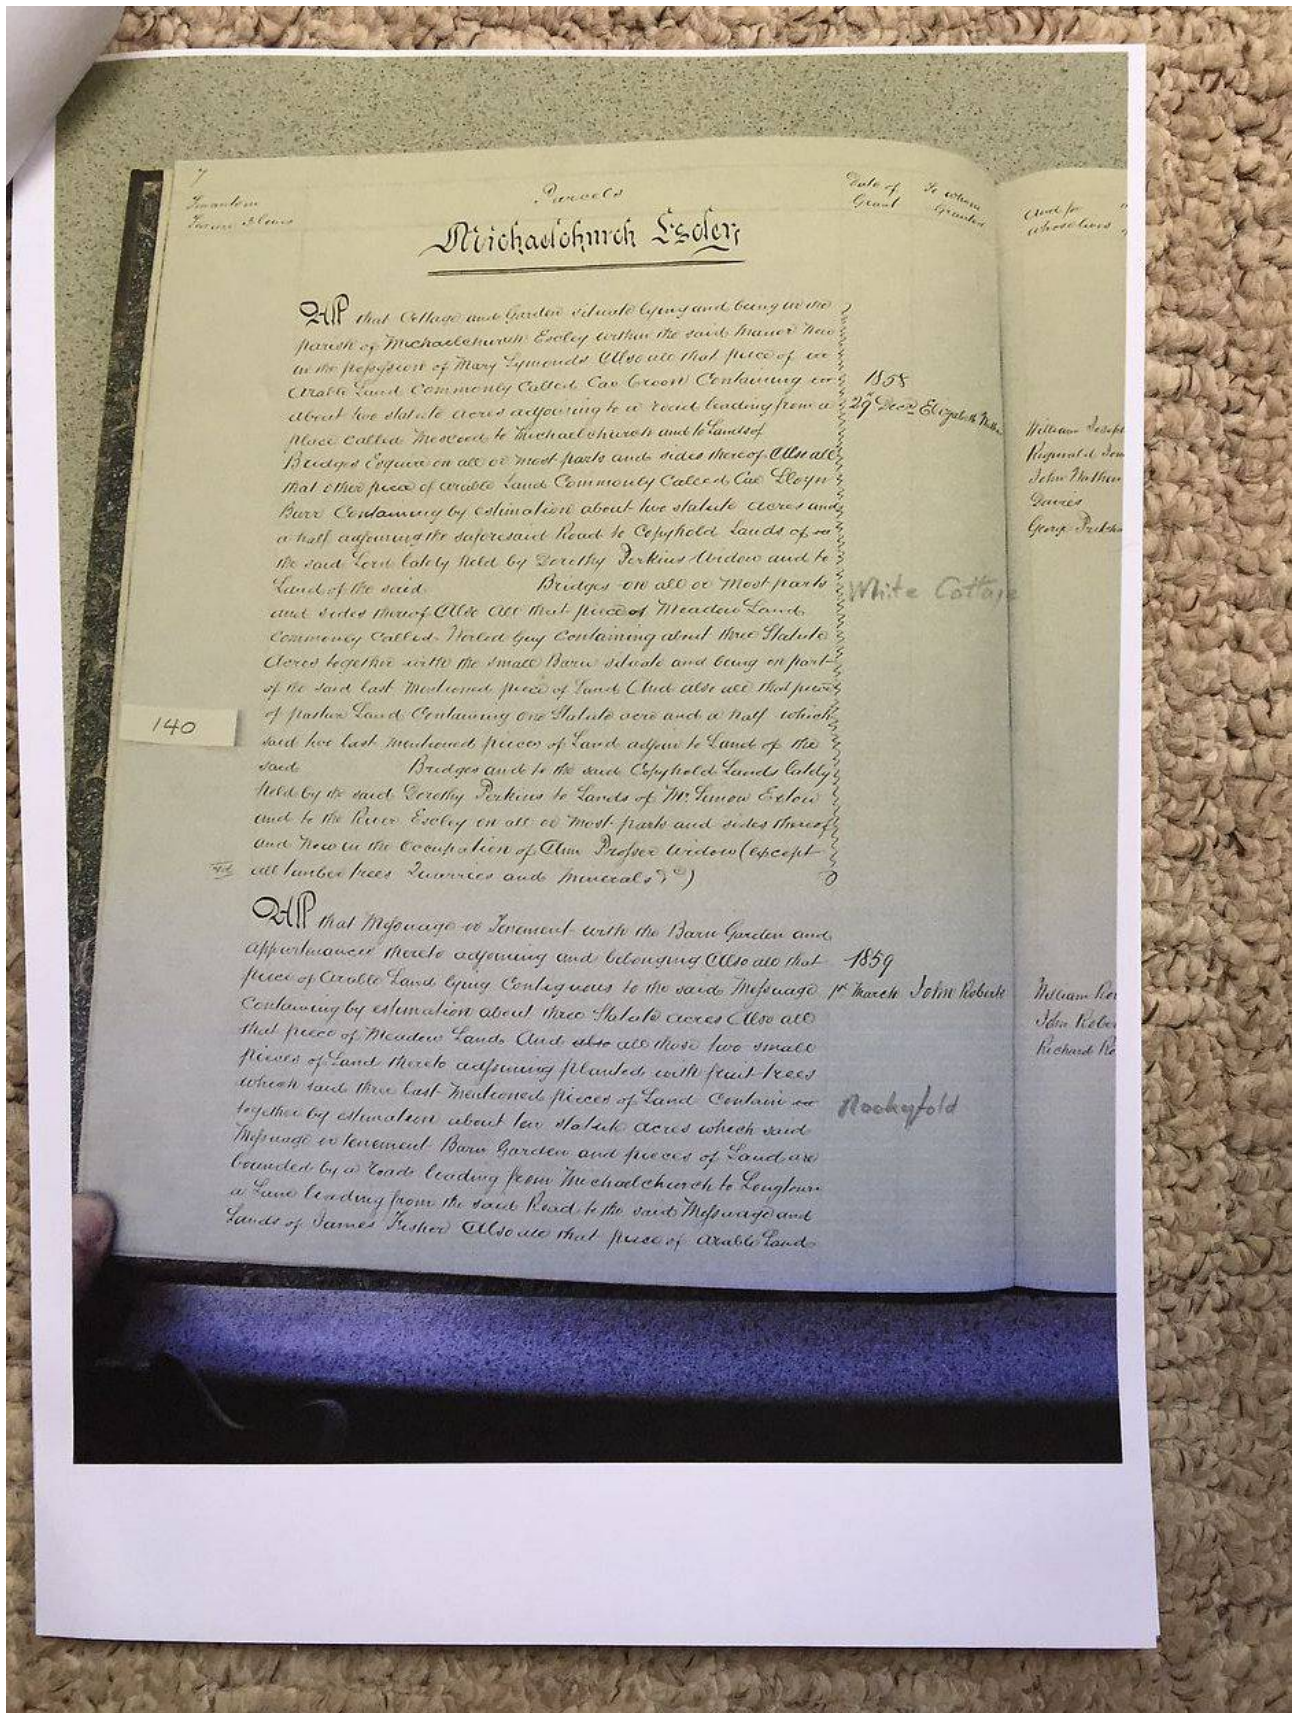 7
Parcels
Date of Grant
To whom Granted
And for whose lives
Michaelchurch Escley
All that Cottage and Garden situate lying and being in the
parish of Michaelchurch Escley within the said Manor Now
in the possession of Mary Symonds Also all that piece of
Arable Land Commonly Called Cae Containing
about two statute acres adjoining to a road leading from a
place called to Michaelchurch and to Lands of
Bridges Esquire on all or most parts and sides thereof Also all
that other piece of arable Land Commonly Called Cae Lloyn
Burr Containing by estimation about two statute acres and
a half adjoining the saforesaid Road to Copyhold Lands of
the said Lord lately held by Dorothy Perkins Widow and to
Land of the said Bridges on all or most parts
and sides thereof Also all that piece of Meadow Land
Commonly Called Guy Containing about three Statute
Acres together with the small Barn situate and being on part
of the said last Mentioned piece of Land And also all that piece
of pasture Land Containing one Statute acre and a half which
said two last mentioned pieces of Land adjoin to Land of the
said Bridges and to the said Copyhold Lands lately
held by the said Dorothy Perkins to Lands of Mr. Simon
and to the River Escley on all or most parts and sides thereof
and Now in the Occupation of Ann Prosser Widow (except
all timber trees Quarries and minerals &c)
1858
29th Decr. Elizabeth
William Joseph
Reginald
John Nathan
Davies
George
White Cottage
140
All that Messuage or Tenement with the Barn Garden and
appurtenances thereto adjoining and belonging Also all that
piece of Arable Land lying Contiguous to the said Messuage
Containing by estimation about three Statute acres Also all
that piece of Meadow Land And also all those two small
pieces of Land thereto adjoining planted with fruit trees
which said three last Mentioned pieces of Land Contain
together by estimation about two statute acres which said
Messuage or tenement Barn Garden and pieces of Land are
bounded by a road leading from Michaelchurch to Longtown
a Lane leading from the said Road to the said Messuage and
Lands of James Fisher Also all that piece of arable Land
1859
1st March John Roberts
William
John
Richard
Rockyfold